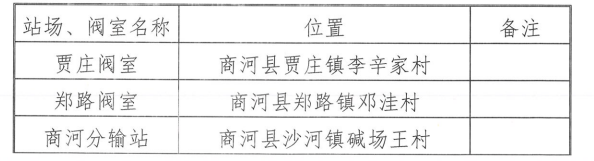 站场、阀室名称 位置 备注
贾庄阀室 商河县贾庄镇李辛家村
郑路阀室 商河县郑路镇邓洼村
商河分输站 商河县沙河镇碱场王村